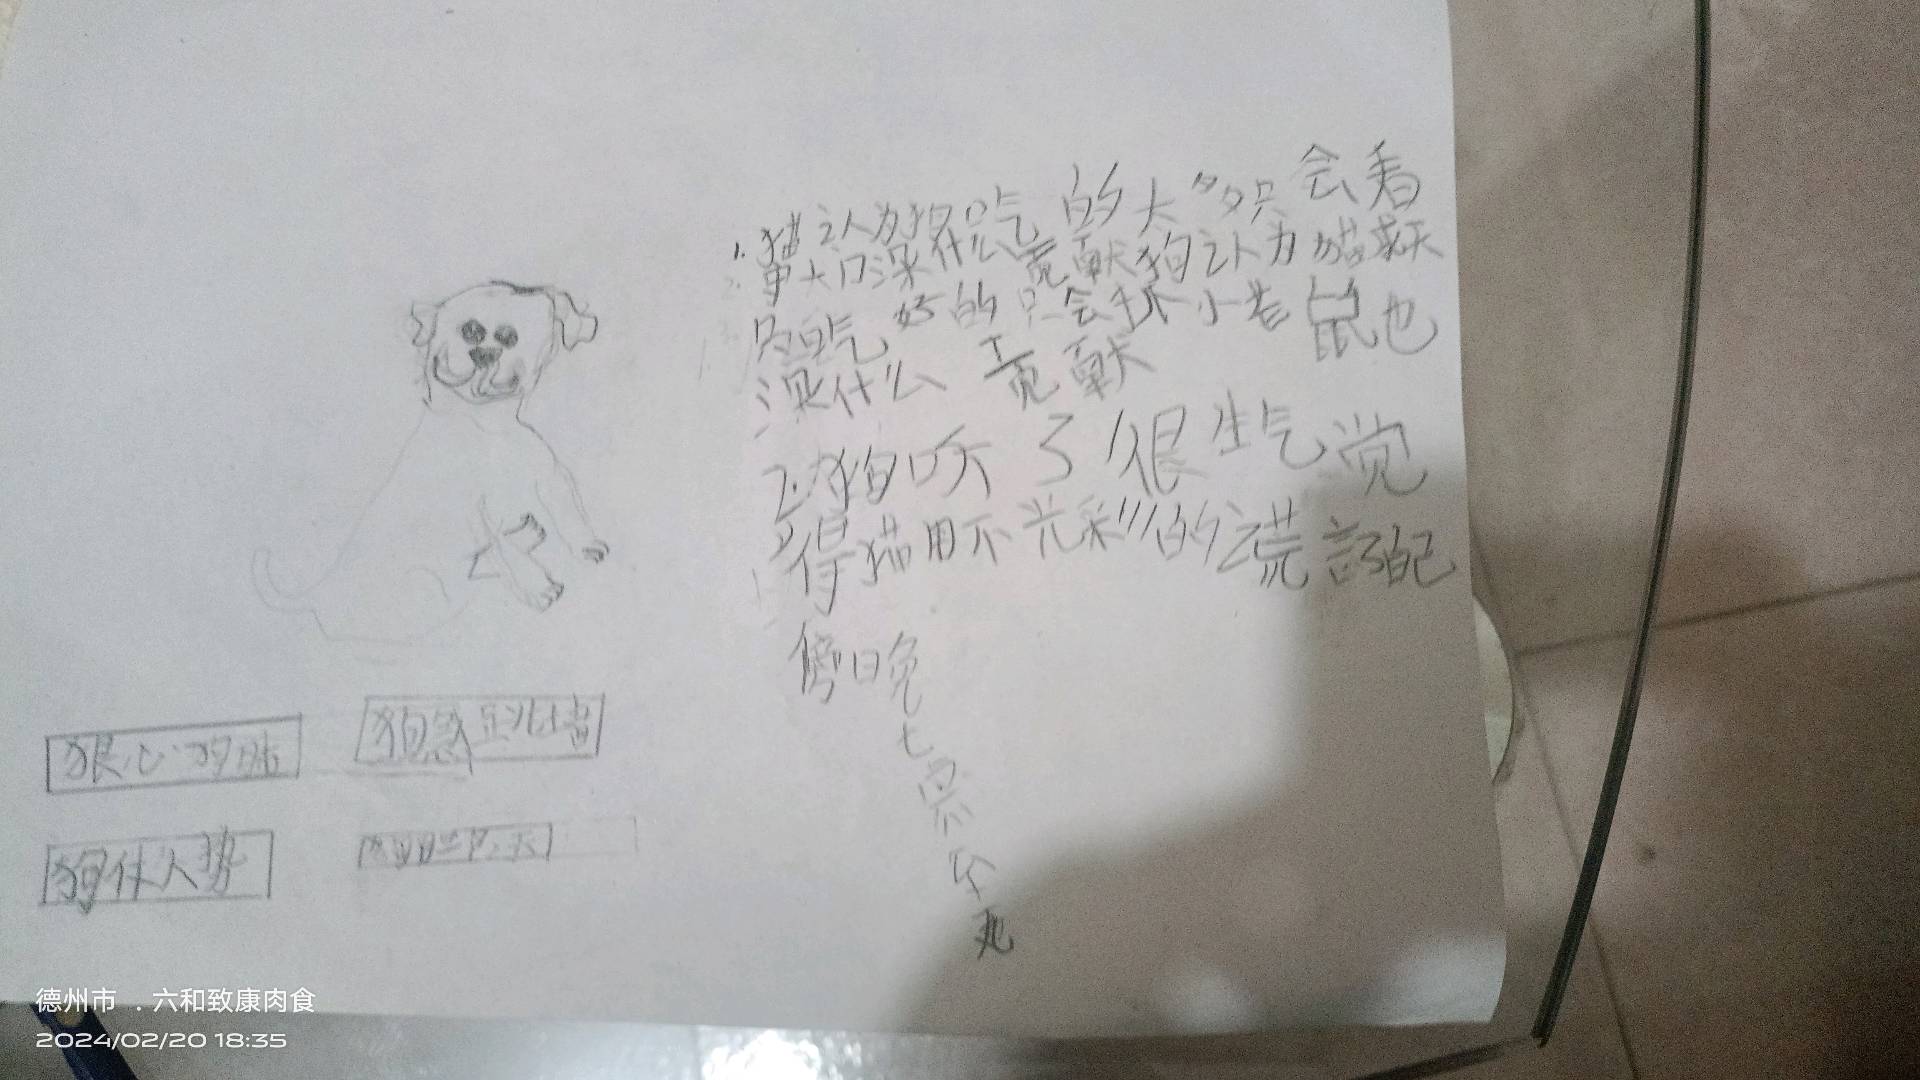 1.猫认为狗吃的太多只会看
大门没什么贡献狗认为猫
只吃好的只会抓小老鼠也
没什么贡献
2.狗听了很生气觉
得猫用不光彩的谎言
傍晚
七
狼心狗肺
狗急跳墙
狗仗人势
德州市 . 六和致康肉食
2024/02/20 18:35